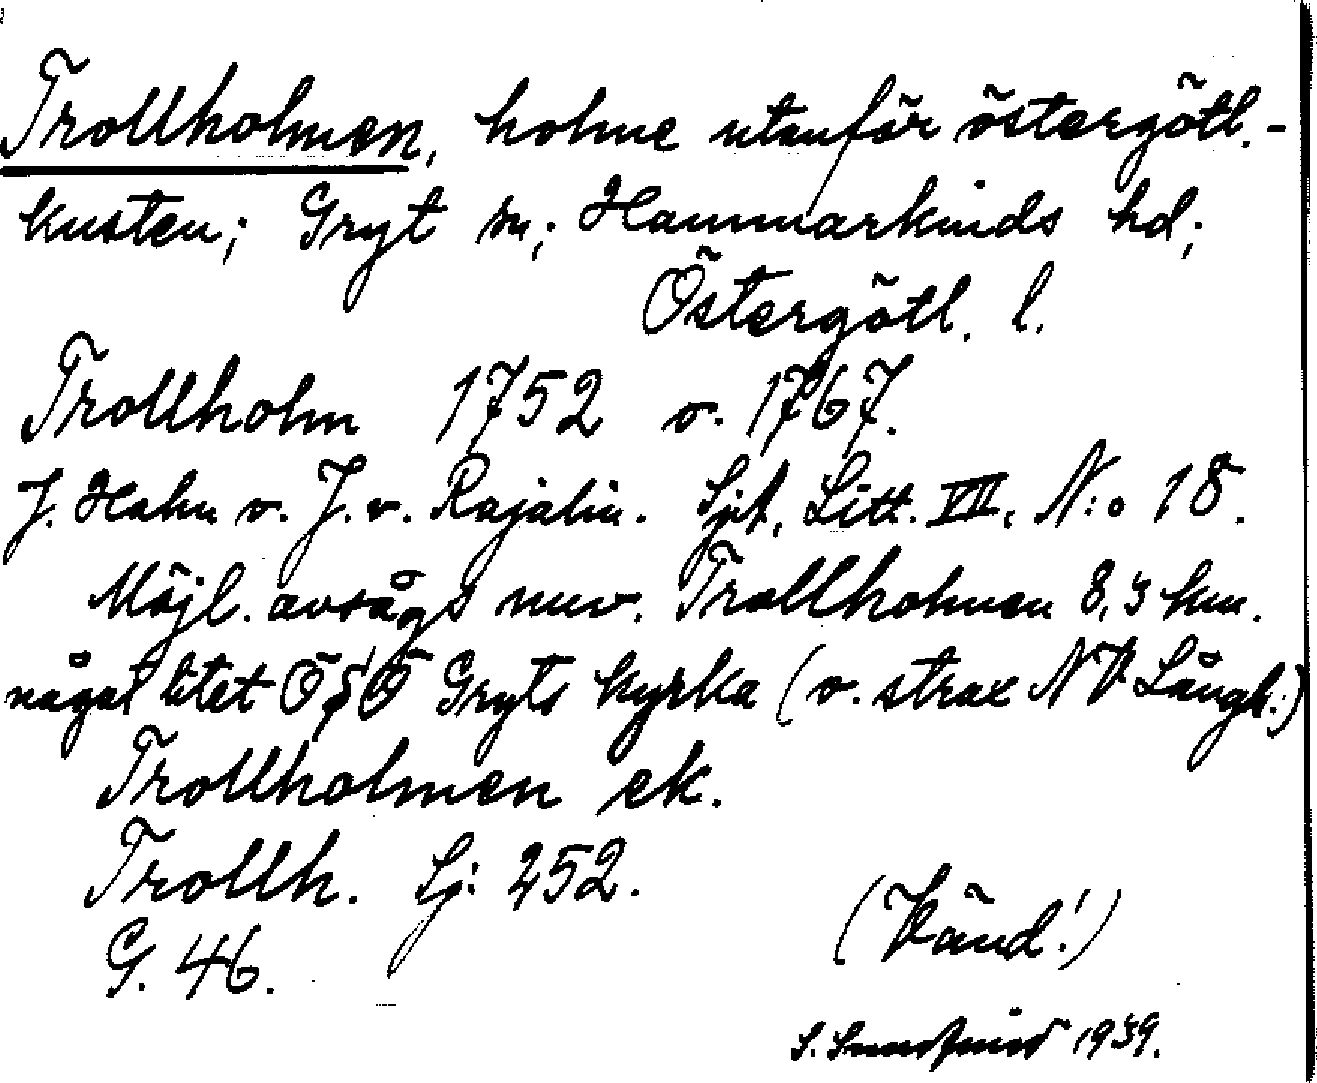 Trollholmen, holme utanför östergötl.-
kusten; Gryt sn; Hammarkinds hd;
Östergötl. l.
Trollholm 1752 o. 1767.
J. Hahn o. J. v. Rajalin. Sjk, Litt. VII, N:o 18.
Möjl. avságs nuv. Trollholmen 8,3 km.
något litet ÖSÖ Gryts kyrka (o. strax NV Långh.)
Trollholmen ek.
Trollh. Sj: 252.
G. 46.
(Vänd!)
S. 1939.